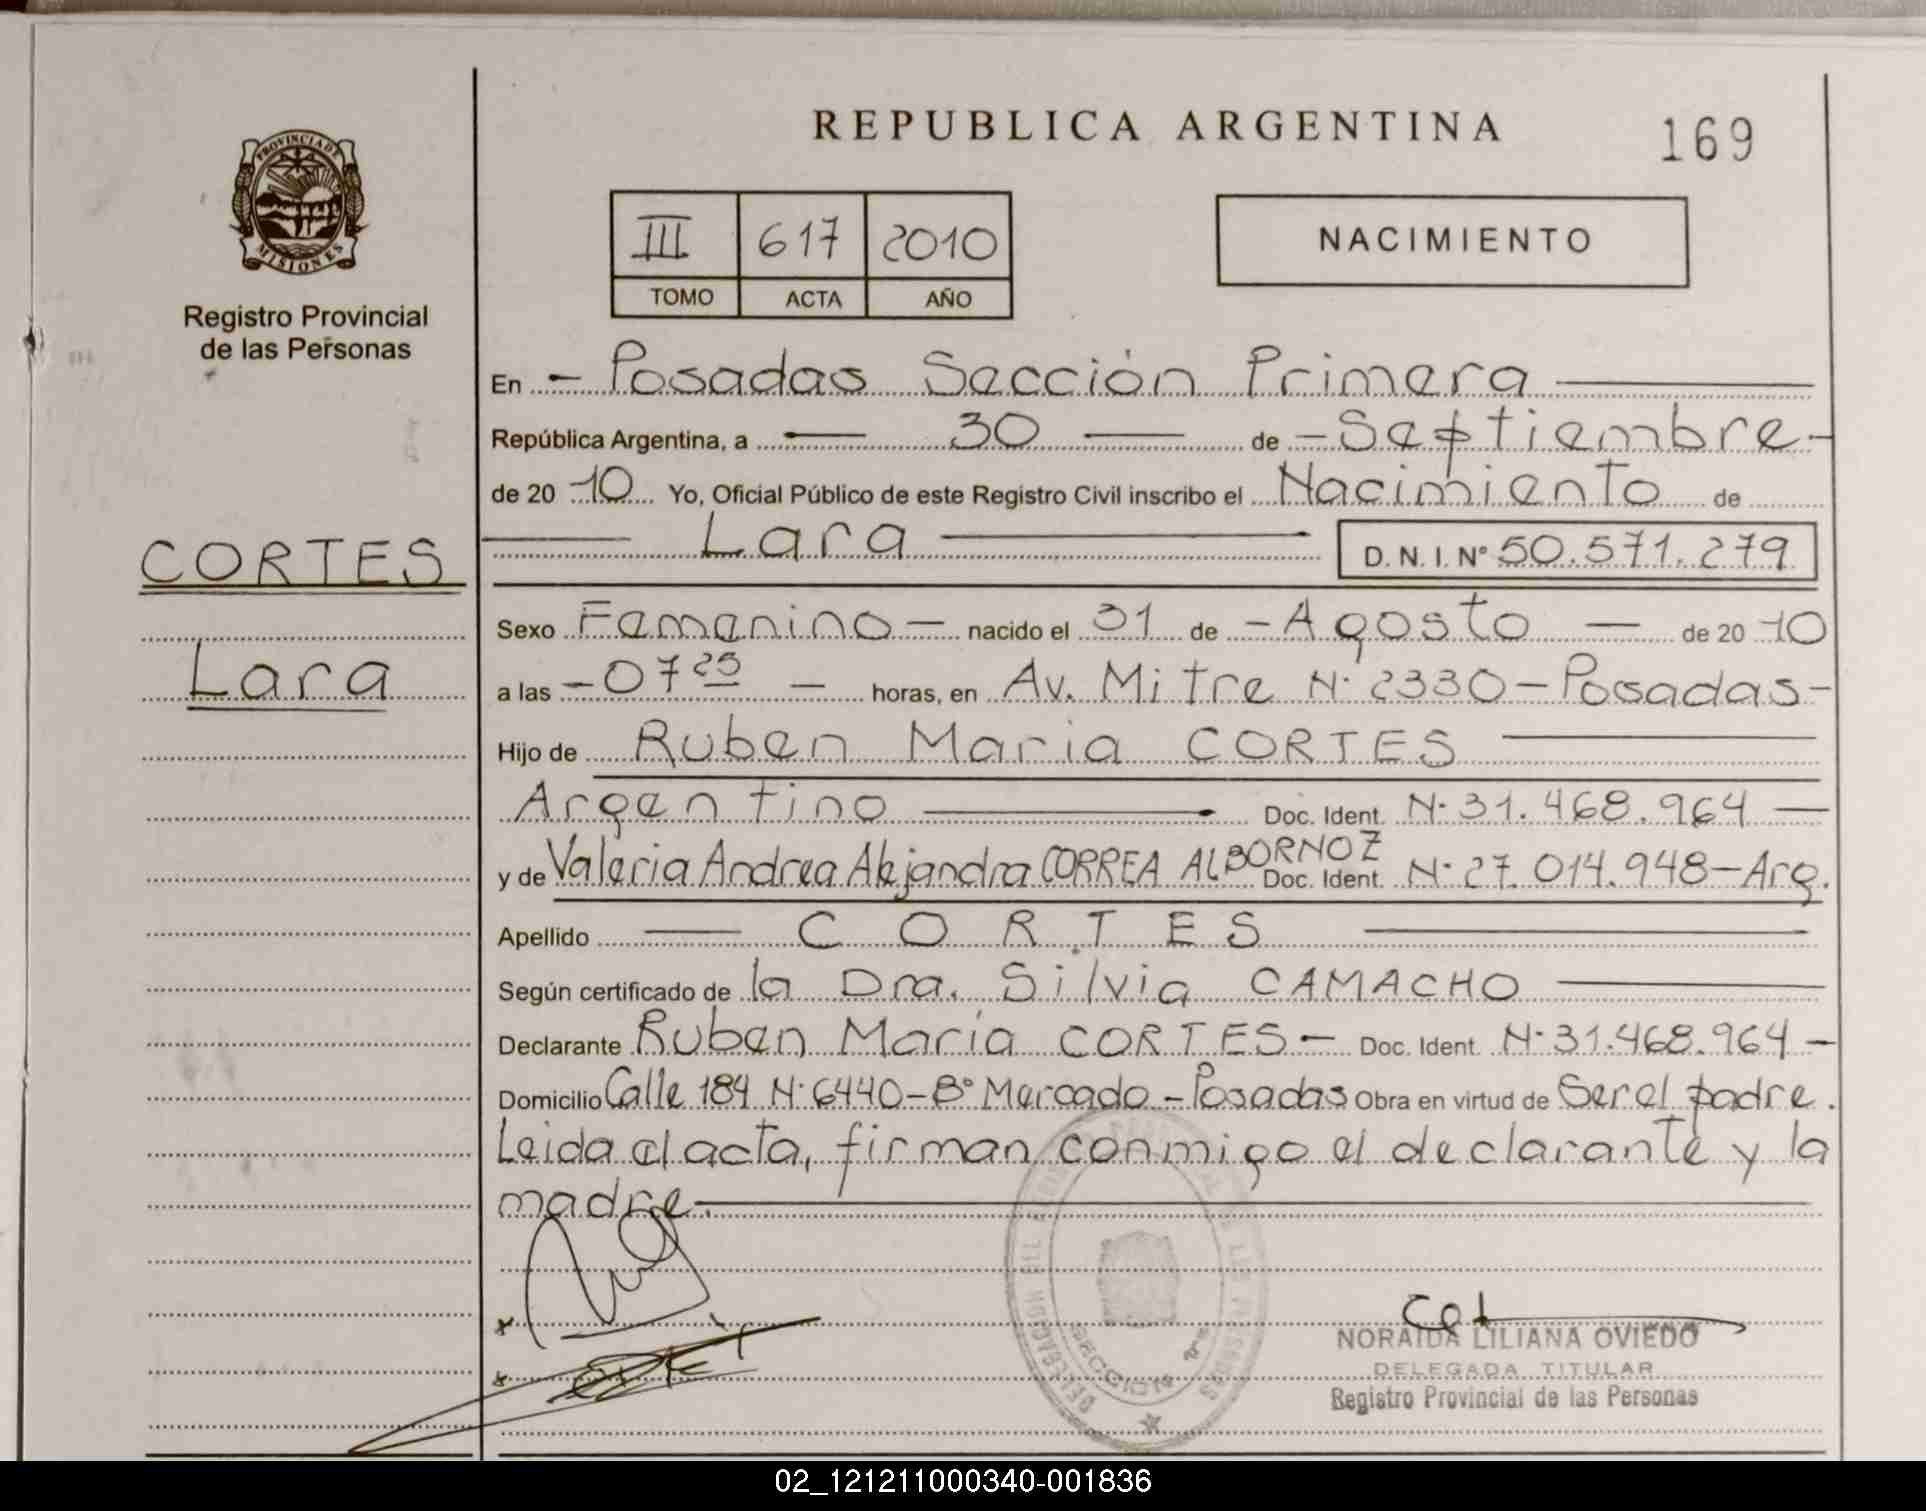 REPUBLICA ARGENTINA
169
PROVINCIA DE
MISIONES
Registro Provincial
de las Personas
III 617 2010
TOMO ACTA AÑO
NACIMIENTO
En - Posadas Sección Primera
República Argentina, a 30 de - Septiembre -
de 20 10 Yo, Oficial Público de este Registro Civil inscribo el Nacimiento de
Lara D.N.I. Nº 50.571.279
CORTES
Lara
Sexo Femenino - nacido el 31 de - Agosto - de 20 10
a las - 07 25 - horas, en Av. Mitre Nº 2330 - Posadas -
Hijo de Ruben Maria CORTES
Argentino Doc. Ident. Nº 31.468.964
y de Valeria Andrea Alejandra CORREA ALBORNOZ Doc. Ident. Nº 27.014.948 - Arg.
Apellido CORTES
Según certificado de la Dra. Silvia CAMACHO
Declarante Ruben María CORTES - Doc. Ident. Nº 31.468.964 -
Domicilio Calle 184 Nº 6440 - Bº Mercado - Posadas Obra en virtud de Ser el padre.
Leida el acta, firman conmigo el declarante y la
madre.
SECCION 1ra
NORAIDA LILIANA OVIEDO
DELEGADA TITULAR
Registro Provincial de las Personas
02_121211000340-001836